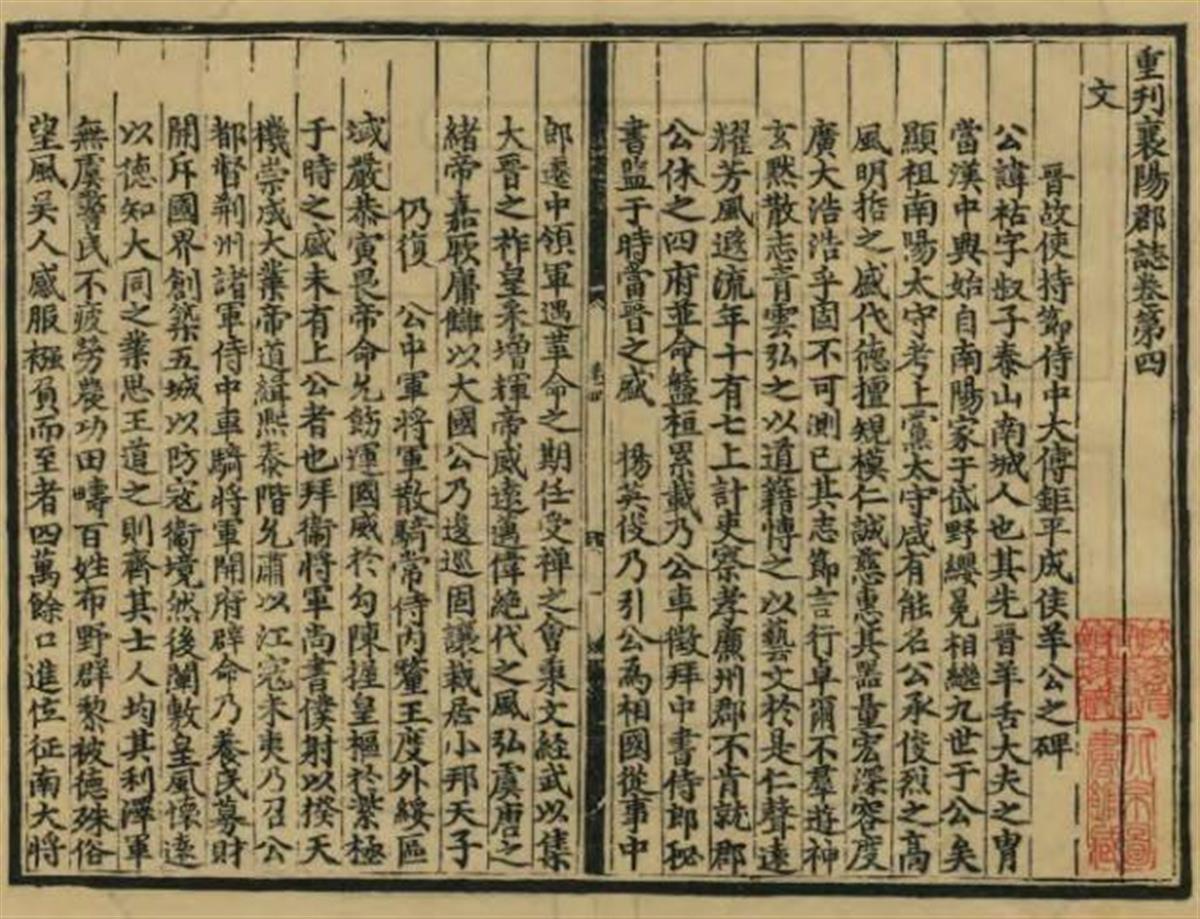 重刊襄陽郡誌卷第四
文
晉故使持節侍中大傅鉅平成侯羊公之碑
公諱祜字叔子泰山南城人也其先晉羊舌大夫之胄
當漢中興始自南陽家于岱野纓冕相繼九世于公矣
顯祖南陽太守考上黨太守咸有能名公承俊烈之高
風明哲之盛代德擅規模仁誠慈惠其器量宏深容度
廣大浩浩乎固不可測已其志節言行卓爾不羣遊神
玄默散志青雲弘之以道籍愽之以藝文於是仁聲遠
耀芳風遐流年十有七上計吏察孝廉州郡不肯就郡
公休之四府並命盤桓累載乃公車徵拜中書侍郎秘
書監于時當晉之盛 楊英俊乃引公為相國從事中
郎遷中領軍遇革命之期任受禅之會秉文経武以集
大晉之祚皇采增輝帝威遠邁偉絶代之風弘虞唐之
緒帝嘉厥庸雝以大國公乃逡巡固讓裁居小邦天子
仍復 公中軍將軍散騎常侍內釐王度外綏區
域嚴恭寅畏帝命允飭運國威於勾陳握皇樞於紫極
于時之盛未有上公者也拜衞將軍尚書僕射以揆天
機崇成大業帝道緝熙泰階允肅以江寇未夷乃召公
都督荊州諸軍侍中車騎將軍開府辟命乃養民募財
開斥國界創築五城以防寇衞境然後闡敷皇風懷遠
以德知大同之業思王道之則齊其士人均其利澤軍
無虞警民不疲勞農功田疇百姓布野群黎被德殊俗
望風吳人感服襁負而至者四萬餘口進位征南大將